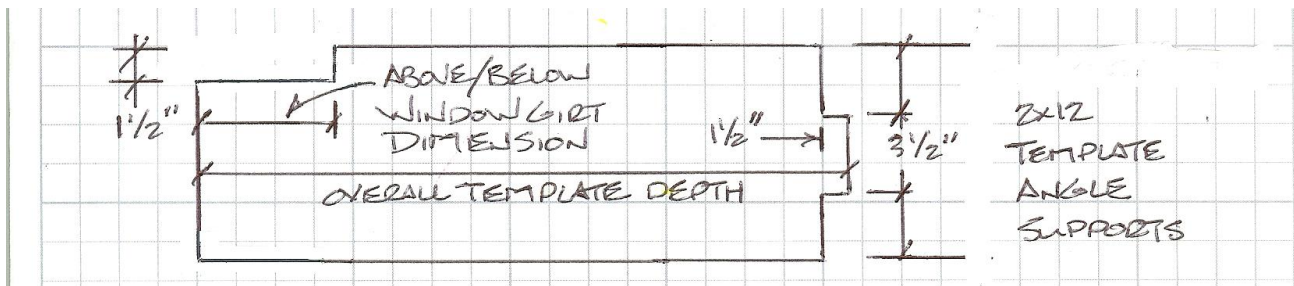 ABOVE/BELOW
WINDOW GIRT
DIMENSION
1 1/2"
1 1/2"
3 1/2"
OVERALL TEMPLATE DEPTH
2x12
TEMPLATE
ANGLE
SUPPORTS